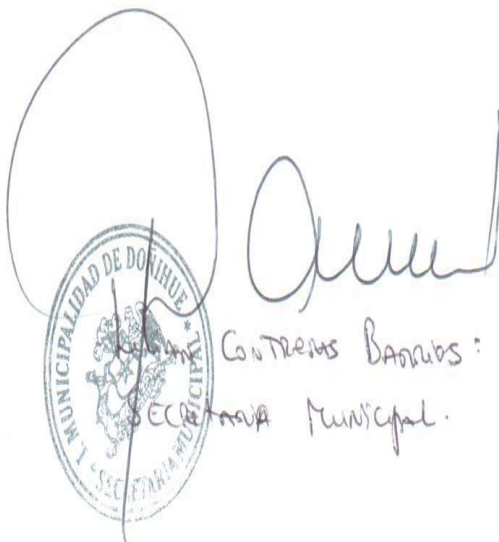 I. MUNICIPALIDAD DE DOÑIHUE * SECRETARIA MUNICIPAL *
CONTRERAS BARRIOS:
SECRETARIA MUNICIPAL.